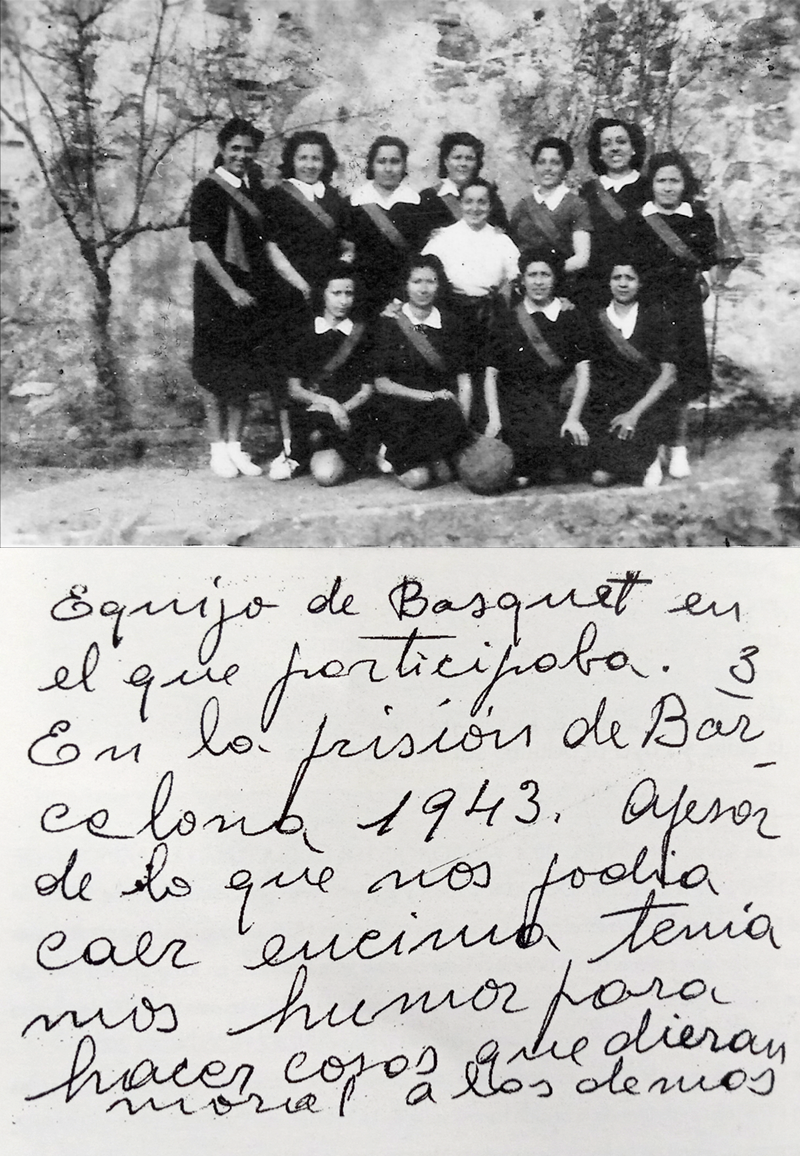 Equipo de Basquet en
el que participaba. 3
En la prisión de Bar
celona 1943. Apesar
de lo que nos podia
caer encima tenia
mos humor para
hacer cosas que dieran
moral a los demas